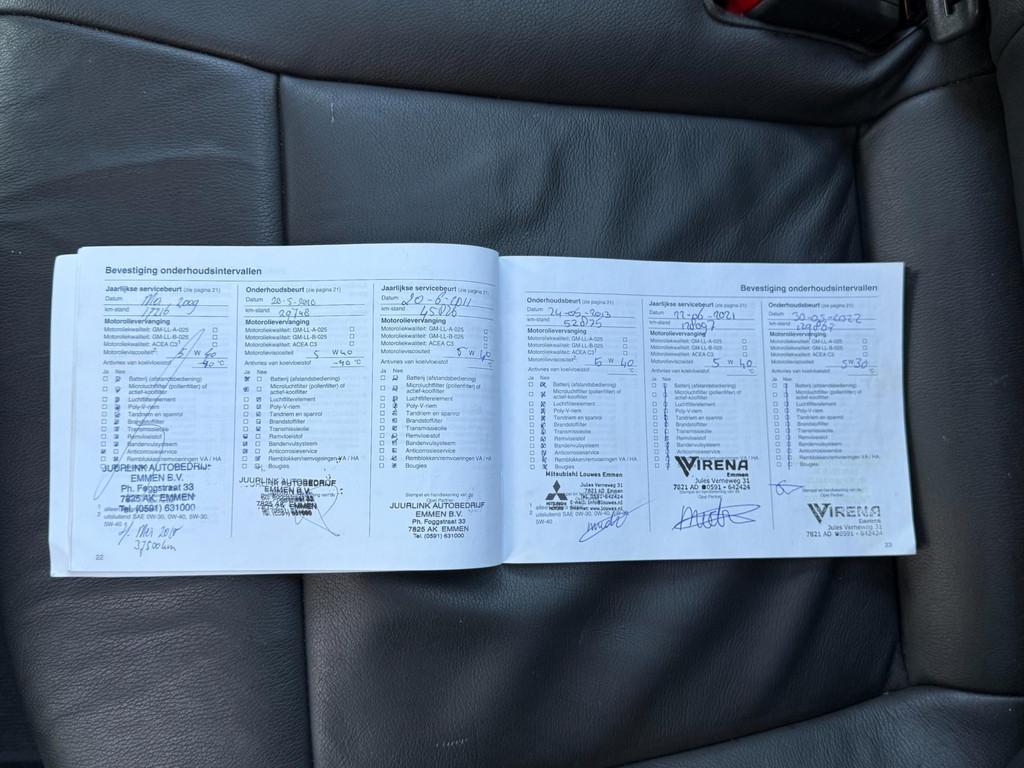 Bevestiging onderhoudsintervallen
Jaarlijkse servicebeurt (zie pagina 21)
Datum Mei 2009
km-stand 17216
Motorolievervanging
Motoroliekwaliteit: GM-LL-A-025
Motoroliekwaliteit: GM-LL-B-025
Motoroliekwaliteit: ACEA C3
Motorolieviscositeit 5 W 40
Antivries van koelvloeistof -40 °C
Ja Nee
Batterij (afstandsbediening)
Microluchtfilter (pollenfilter) of
actief-koolfilter
Luchtfilterelement
Poly-V-riem
Tandriem en spanrol
Brandstoffilter
Transmissieolie
Remvloeistof
Bandenvulsysteem
Anticorrosieservice
Remblokken/remvoeringen VA / HA
JUURLINK AUTOBEDRIJF
EMMEN B.V.
Ph. Foggstraat 33
7825 AK EMMEN
Tel. (0591) 631000
Mei 2010
37500km
22
Onderhoudsbeurt (zie pagina 21)
Datum 20-5-2010
km-stand 29748
Motorolievervanging
Motoroliekwaliteit: GM-LL-A-025
Motoroliekwaliteit: GM-LL-B-025
Motoroliekwaliteit: ACEA C3
Motorolieviscositeit 5 W 40
Antivries van koelvloeistof -40 °C
Ja Nee
Batterij (afstandsbediening)
Microluchtfilter (pollenfilter) of
actief-koolfilter
Luchtfilterelement
Poly-V-riem
Tandriem en spanrol
Brandstoffilter
Transmissieolie
Remvloeistof
Bandenvulsysteem
Anticorrosieservice
Remblokken/remvoeringen VA / HA
Bougies
JUURLINK AUTOBEDRIJF
EMMEN B.V.
Jaarlijkse servicebeurt (zie pagina 21)
Datum 20-6-2011
km-stand 45026
Motorolievervanging
Motoroliekwaliteit: GM-LL-A-025
Motoroliekwaliteit: GM-LL-B-025
Motoroliekwaliteit: ACEA C3
Motorolieviscositeit 5 W 40
Antivries van koelvloeistof
Ja Nee
Batterij (afstandsbediening)
Microluchtfilter (pollenfilter) of
actief-koolfilter
Luchtfilterelement
Poly-V-riem
Tandriem en spanrol
Brandstoffilter
Transmissieolie
Remvloeistof
Bandenvulsysteem
Anticorrosieservice
Remblokken/remvoeringen VA / HA
Bougies
Stempel en handtekening van de
Opel Partner
JUURLINK AUTOBEDRIJF
EMMEN B.V.
Ph. Foggstraat 33
7825 AK EMMEN
Tel. (0591) 631000
Bevestiging onderhoudsintervallen
Onderhoudsbeurt (zie pagina 21)
Datum 24-05-2013
km-stand 52875
Motorolievervanging
Motoroliekwaliteit: GM-LL-A-025
Motoroliekwaliteit: GM-LL-B-025
Motoroliekwaliteit: ACEA C3
Motorolieviscositeit 5 W 40
Antivries van koelvloeistof °C
Ja Nee
Batterij (afstandsbediening)
Microluchtfilter (pollenfilter) of
actief-koolfilter
Luchtfilterelement
Poly-V-riem
Tandriem en spanrol
Brandstoffilter
Transmissieolie
Remvloeistof
Bandenvulsysteem
Anticorrosieservice
Remblokken/remvoeringen VA / HA
Bougies
Mitsubishi Louwes Emmen
Jules Verneweg 31
7821 AD Emmen
Tel. 0591-642424
uitsluitend SAE 0W-30, 0W-40, 5W-30,
5W-40
Jaarlijkse servicebeurt (zie pagina 21)
Datum 22-06-2021
km-stand 128097
Motorolievervanging
Motoroliekwaliteit: GM-LL-A-025
Motoroliekwaliteit: GM-LL-B-025
Motoroliekwaliteit: ACEA C3
Motorolieviscositeit 5 W 40
Antivries van koelvloeistof °C
Ja Nee
Batterij (afstandsbediening)
Microluchtfilter (pollenfilter) of
actief-koolfilter
Luchtfilterelement
Poly-V-riem
Tandriem en spanrol
Brandstoffilter
Transmissieolie
Remvloeistof
Bandenvulsysteem
Anticorrosieservice
Remblokken/remvoeringen VA / HA
VIRENA
Emmen
Jules Verneweg 31
7821 AD ☎0591 - 642424
Onderhoudsbeurt (zie pagina 21)
Datum 30-05-2022
km-stand 129867
Motorolievervanging
Motoroliekwaliteit: GM-LL-A-025
Motoroliekwaliteit: GM-LL-B-025
Motoroliekwaliteit: ACEA C3
Motorolieviscositeit 5W30
Antivries van koelvloeistof °C
Ja Nee
Batterij (afstandsbediening)
Microluchtfilter (pollenfilter) of
actief-koolfilter
Luchtfilterelement
Poly-V-riem
Tandriem en spanrol
Brandstoffilter
Transmissieolie
Remvloeistof
Bandenvulsysteem
Anticorrosieservice
Remblokken/remvoeringen VA / HA
Bougies
Stempel en handtekening van de
Opel Partner
VIRENA
Emmen
Jules Verneweg 31
7821 AD ☎0591 - 642424
23